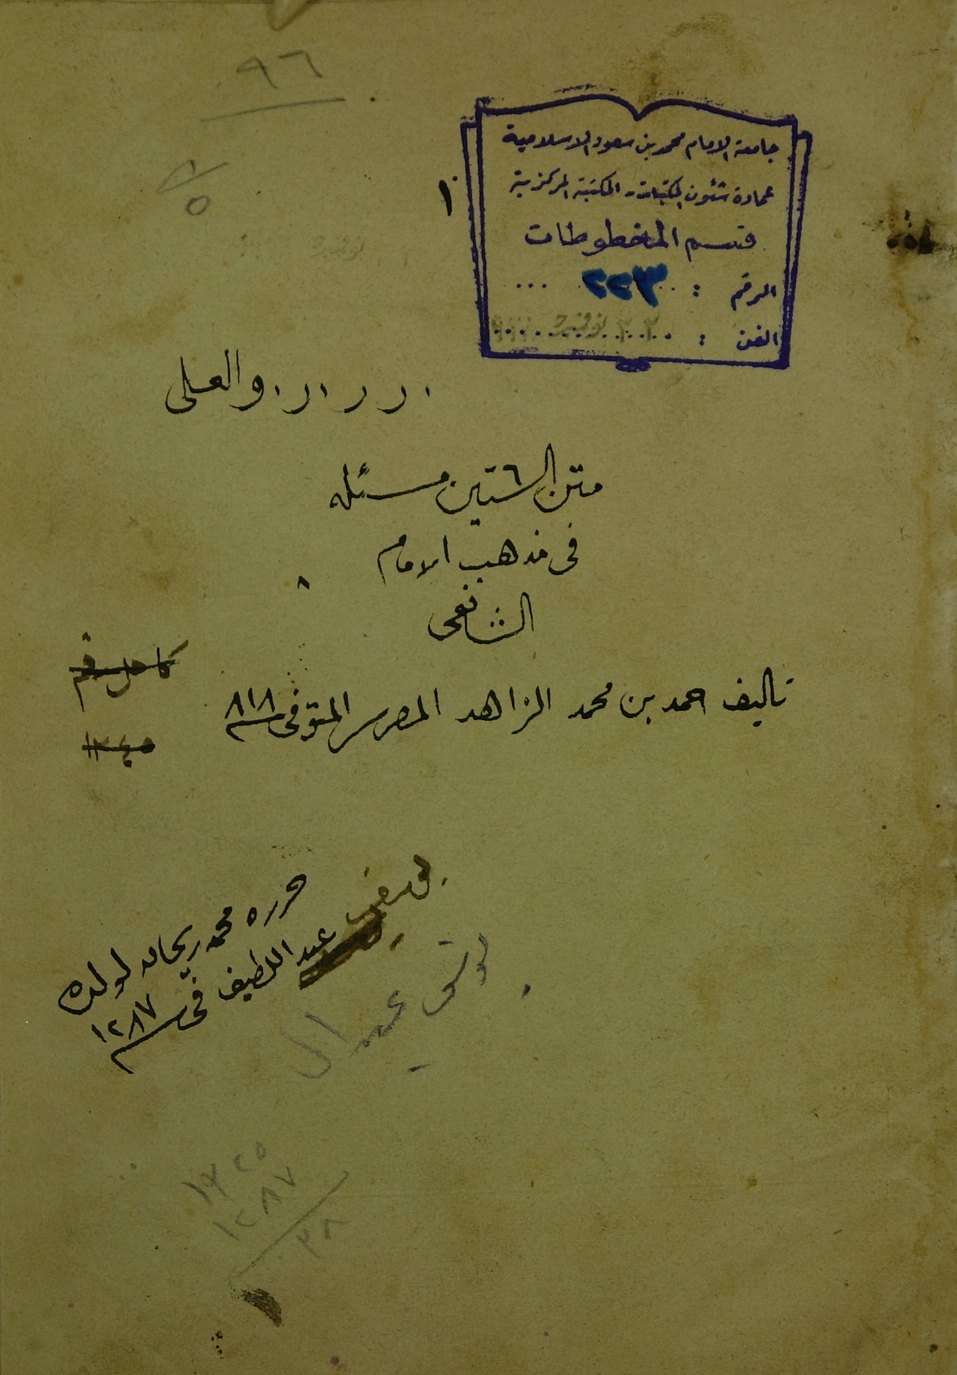 ٩٦
جامعة الامام محمد بن سعود الاسلامية
عمادة شئون المكتبات - المكتبة المركزية
قسم المخطوطات
الرقم : ٢٢٣ ...
الفن :
والعلى
متن الستين مسئله
فى مذهب الامام
الشافعى
تاليف احمد بن محمد الزاهد المصرى المتوفى سنة ٨١٨
حرره محمد ريحان لولده
عبد اللطيف فى سنة ١٢٨٧
١٣٢٥
١٢٨٧
٣٨